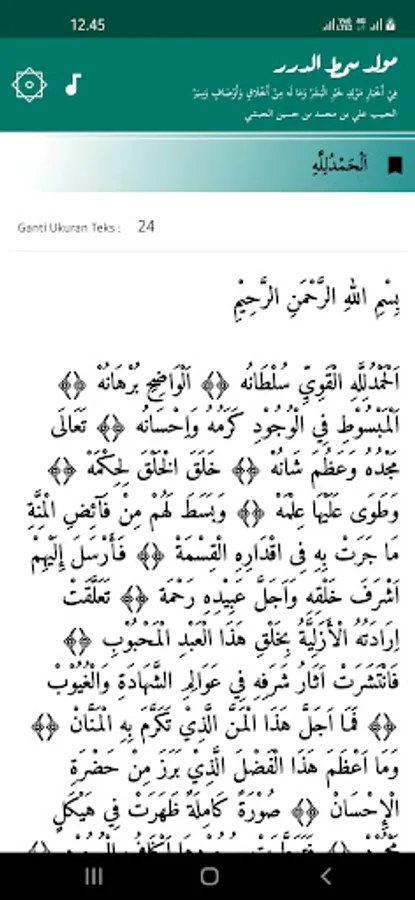 12.45
مولد سمط الدرر
فِيْ أَخْبَارِ مَوْلِدِ خَيْرِ الْبَشَرِ وَمَا لَهُ مِنْ أَخْلَاقٍ وَأَوْصَافٍ وَسِيَرْ
الحبيب علي بن محمد بن حسين الحبشي
اَلْحَمْدُلِلَّهِ
Ganti Ukuran Teks : 24
بِسْمِ اللهِ الرَّحْمَنِ الرَّحِيْمِ
اَلْحَمْدُلِلَّهِ الْقَوِيِّ سُلْطَانُه ﴿﴾ اَلْوَاضِحِ بُرْهَانُهْ ﴿﴾
اَلْمَبْسُوْطِ فِي الْوُجُوْدِ كَرَمُهُ وَاِحْسَانُه ﴿﴾ تَعَالَى
مَجْدُهُ وَعَظُمَ شَانُهْ ﴿﴾ خَلَقَ الْخَلْقَ لِحِكْمَهْ ﴿﴾
وَطَوَى عَلَيْهَا عِلْمَهْ ﴿﴾ وَبَسَطَ لَهُمْ مِنْ فَآئِضِ الْمِنَّةِ
مَا جَرَتْ بِهِ فِى اَقْدَارِهِ الْقِسْمَةْ ﴿﴾ فَأَرْسَلَ إِلَيْهِمْ
اَشْرَفَ خَلْقِهِ وَاَجَلَّ عَبِيْدِهِ رَحْمَة ﴿﴾ تَعَلَّقَتْ
اِرَادَتُهُ الْأَزَلِيَّةُ بِخَلْقِ هَذَا الْعَبْدِ الْمَحْبُوْبِ ﴿﴾
فَانْتَشَرَتْ اَثَارُ شَرَفِهِ فِي عَوَالِمِ الشَّهَادَةِ وَالْغُيُوْبْ
﴿﴾ فَمَا اَجَلَّ هَذَا الْمَنَّ الَّذِيْ تَكَرَّمَ بِهِ الْمَنَّانْ ﴿﴾
وَمَا اَعْظَمَ هَذَا الْفَضْلَ الَّذِيْ بَرَزَ مِنْ حَضْرَةِ
الْاِحْسَانْ ﴿﴾ صُوْرَةً كَامِلَةً ظَهَرَتْ فِي هَيْكَلٍ